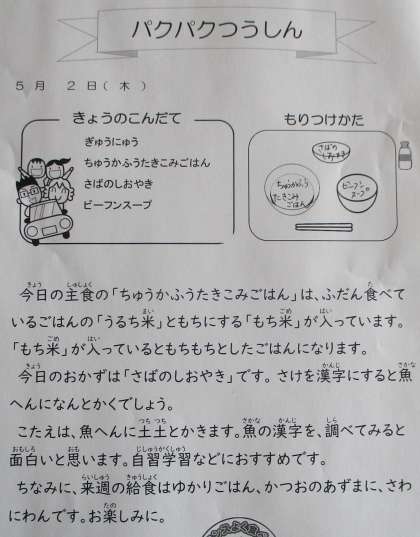 パクパクつうしん
5月 2日(木)
きょうのこんだて
ぎゅうにゅう
ちゅうかふうたきこみごはん
さばのしおやき
ビーフンスープ
もりつけかた
さばの
しおやき
ちゅうかふう
たきこみ
ごはん
ビーフン
スープ
今日の主食の「ちゅうかふうたきこみごはん」は、ふだん食べて
いるごはんの「うるち米」ともちにする「もち米」が入っています。
「もち米」が入っているともちもちとしたごはんになります。
今日のおかずは「さばのしおやき」です。さけを漢字にすると魚
へんになんとかくでしょう。
こたえは、魚へんに土土とかきます。魚の漢字を、調べてみると
面白いと思います。自習学習などにおすすめです。
ちなみに、来週の給食はゆかりごはん、かつおのあずまに、さわ
にわんです。お楽しみに。